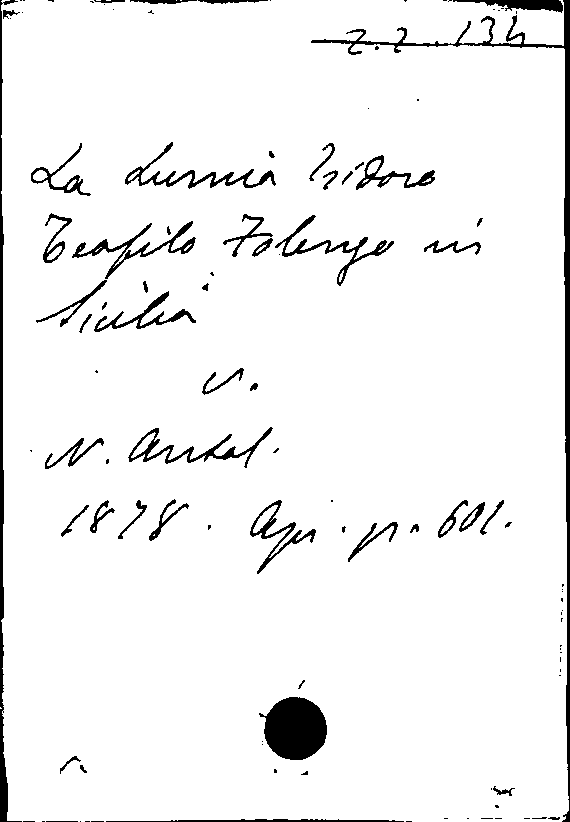 Z.2.134
La Lumia Isidoro
Teofilo Folengo in
Sicilia
v.
N. Antol.
1878. Apr. p. 601.